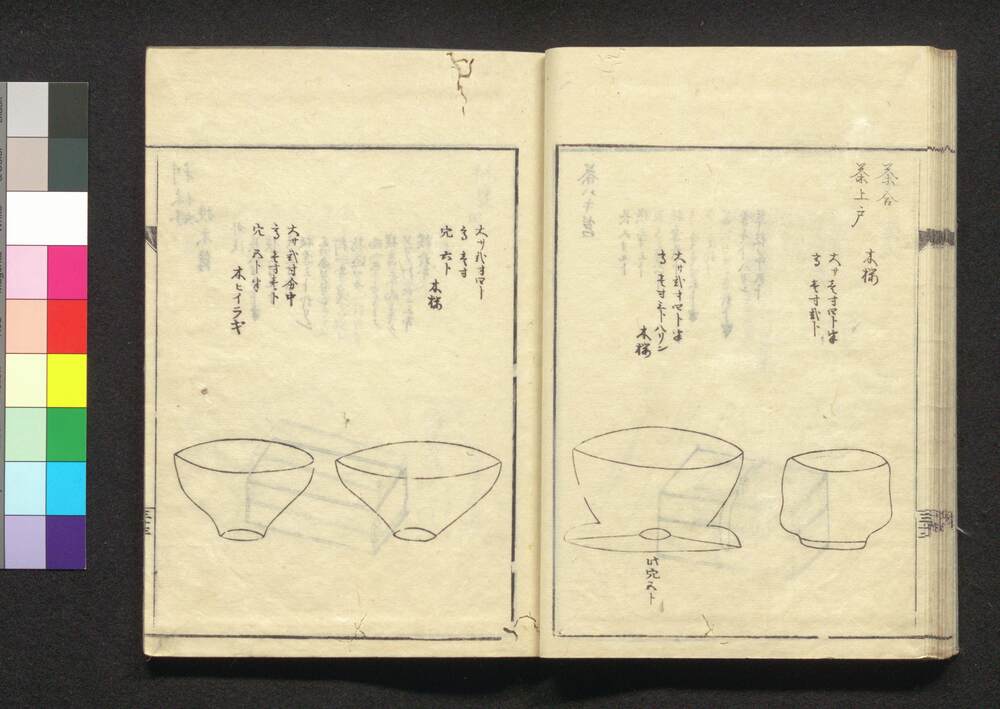 茶合
茶上戸
木桜
大サ壱寸四ト半
高サ壱寸弐ト
大サ弐寸四ト半
高サ壱寸三トハリン
木桜
此穴五ト
大サ弐寸四ト
高サ壱寸
穴六ト
木桜
大サ弐寸合中
高サ壱寸壱ト
穴五ト半
木ヒイラギ